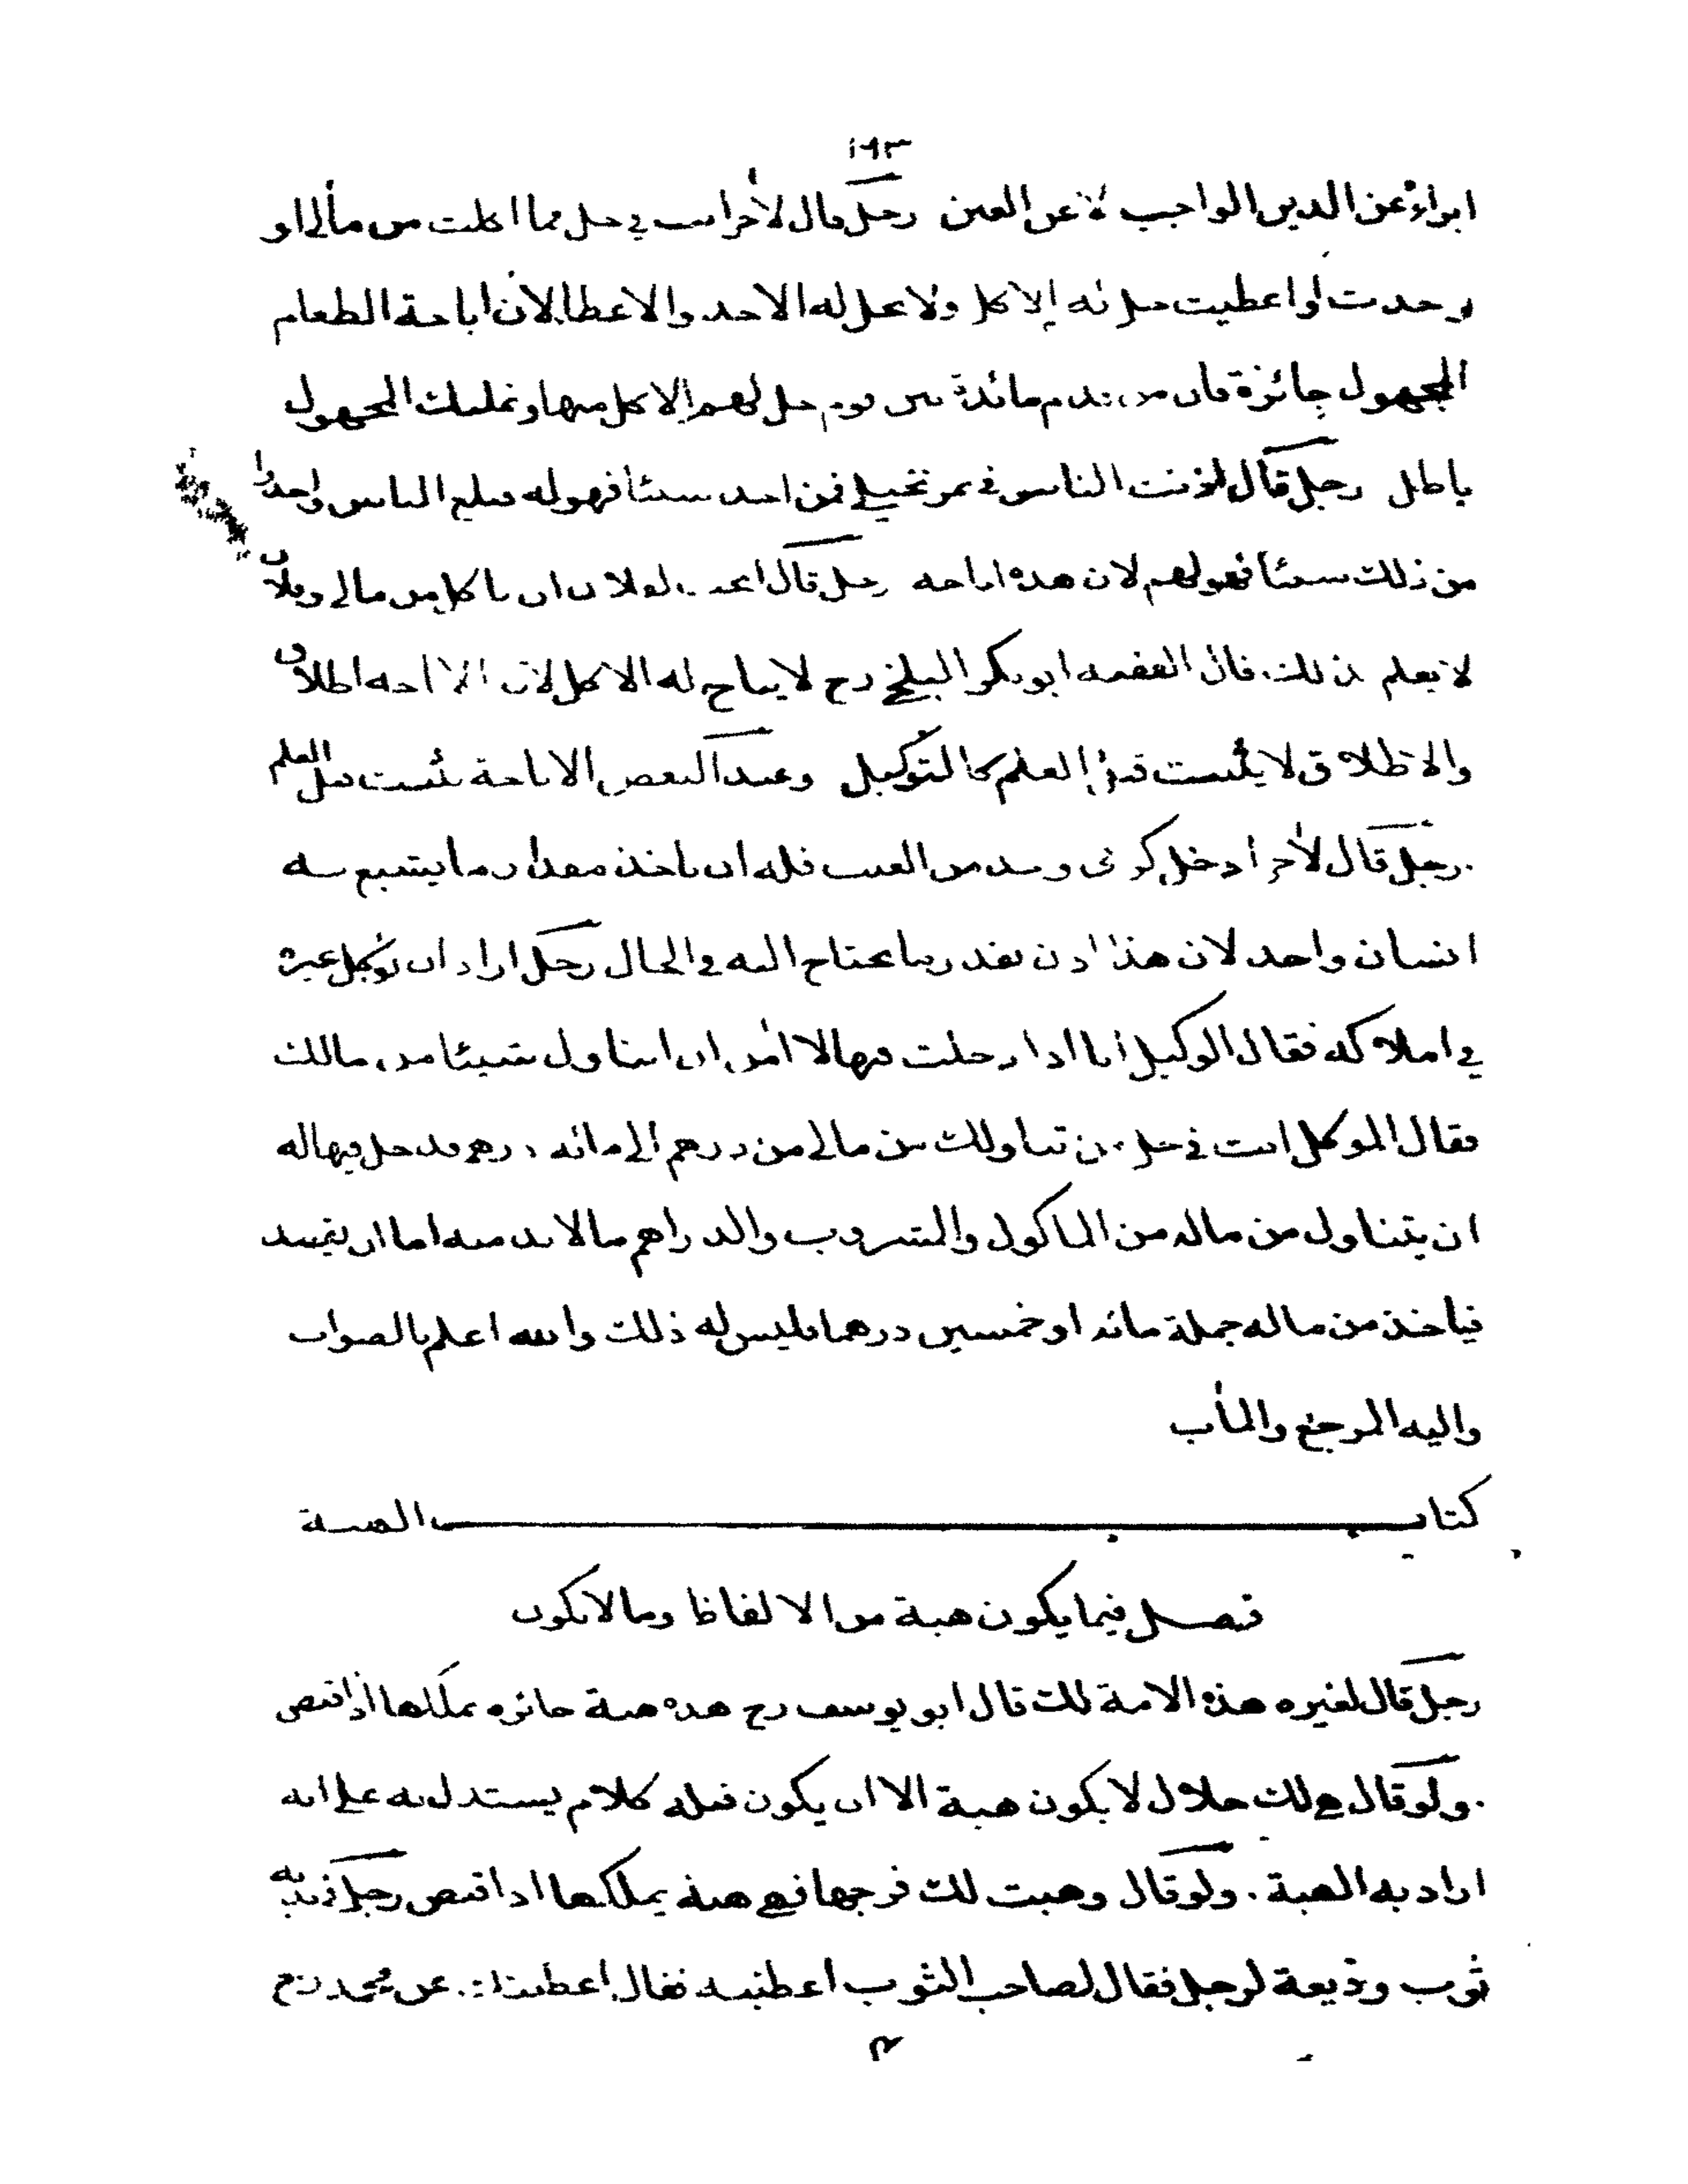 ابراء عن الدين الواجب لا عن العين رجل قال لاخر انت في حل مما اكلت من مالي او
اخذت او اعطيت حل له الاكل ولا يحل له الاخذ والاعطا لان اباحة الطعام
المجهول جائزة فان من قدم مائدة بين قوم حل لهم الاكل منها وتمليك المجهول
باطل رجل قال اذنت الناس في ثمر نخيلي فمن اخذ شيئا فهو له فبلغ الناس واخذوا
من ذلك شيئا فهو لهم لان هذه اباحه رجل قال ابحت لفلان ان ياكل من مالي وفلان
لا يعلم بذلك قال الفقيه ابو بكر البلخي رح لا يباح له الاكل لان الاباحه اطلاق
والاطلاق لا يثبت قبل العلم كالتوكيل وعند البعض الاباحة تثبت قبل العلم
رجل قال لاخر ادخل كرمى وخذ من العنب فله ان ياخذ مقدار ما يشبع به
انسان واحد لان هذا اذن بقدر ما يحتاج اليه في الحال رجل اراد ان يوكل غيره
في املاكه فقال الوكيل انا اذا دخلت فيها لا امن ان اتناول شيئا من مالك
فقال الموكل انت في حل من تناولك من مالي من درهم الى مائه درهم فدخل فيها له
ان يتناول من ماله من الماكول والمشروب والدراهم ما لا بد منه اما ان يقصد
فياخذ من ماله جملة مائه او خمسين درهما فليس له ذلك والله اعلم بالصواب
واليه المرجع والمأب
كتاب الهبة
فصل فيما يكون هبة من الالفاظ وما لا يكون
رجل قال لغيره هذه الامة لك قال ابو يوسف رح هذه هبة جائزه يملكها اذا قبض
ولو قال هي لك حلال لا يكون هبة الا ان يكون قبله كلام يستدل به على انه
اراد به الهبة . ولو قال وهبت لك فرجها فهي هبة يملكها اذا قبض رجل في يديه
ثوب وديعة لرجل فقال لصاحب الثوب اعطنيه فقال اعطيتك عن محمد رح